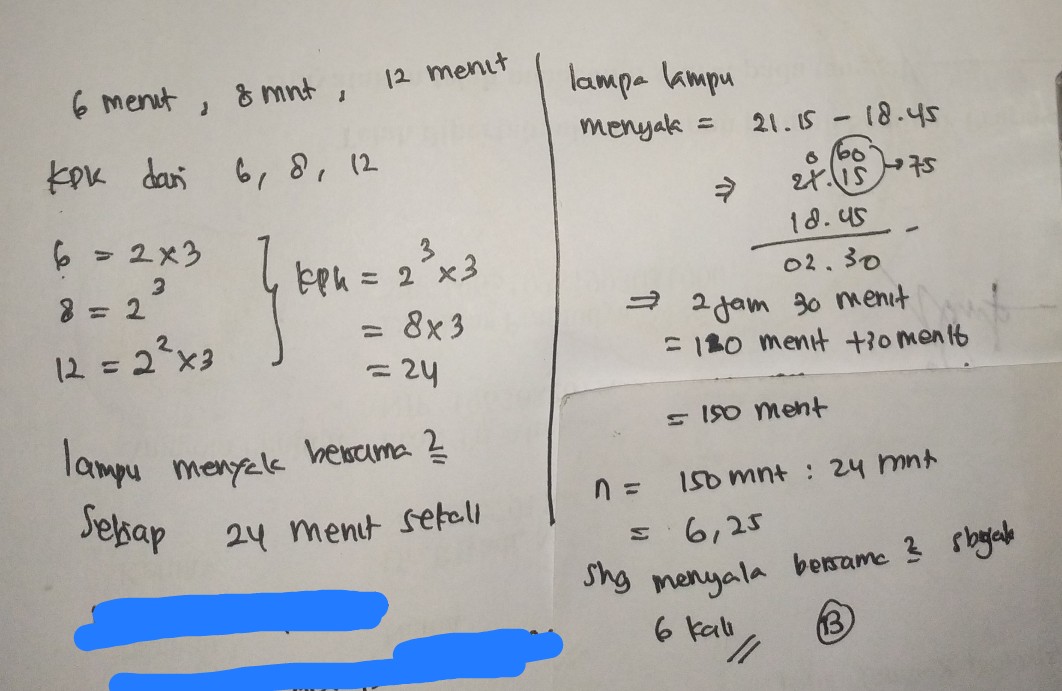 6 menit, 8 mnt, 12 menit
KPK dari 6, 8, 12
6 = 2 x 3
8 = 2³
12 = 2² x 3
kpk = 2³ x 3
= 8 x 3
= 24
lampu menyala bersama 2
Setiap 24 menit sekali
lampa lampu
menyak = 21.15 - 18.45
0 60
⇒ 21.15 → 75
18.45 -
02.30
⇒ 2 jam 30 menit
= 120 menit + 30 menit
= 150 ment
n = 150 mnt : 24 mnt
= 6,25
shg menyala bersama 2
6 kali // B